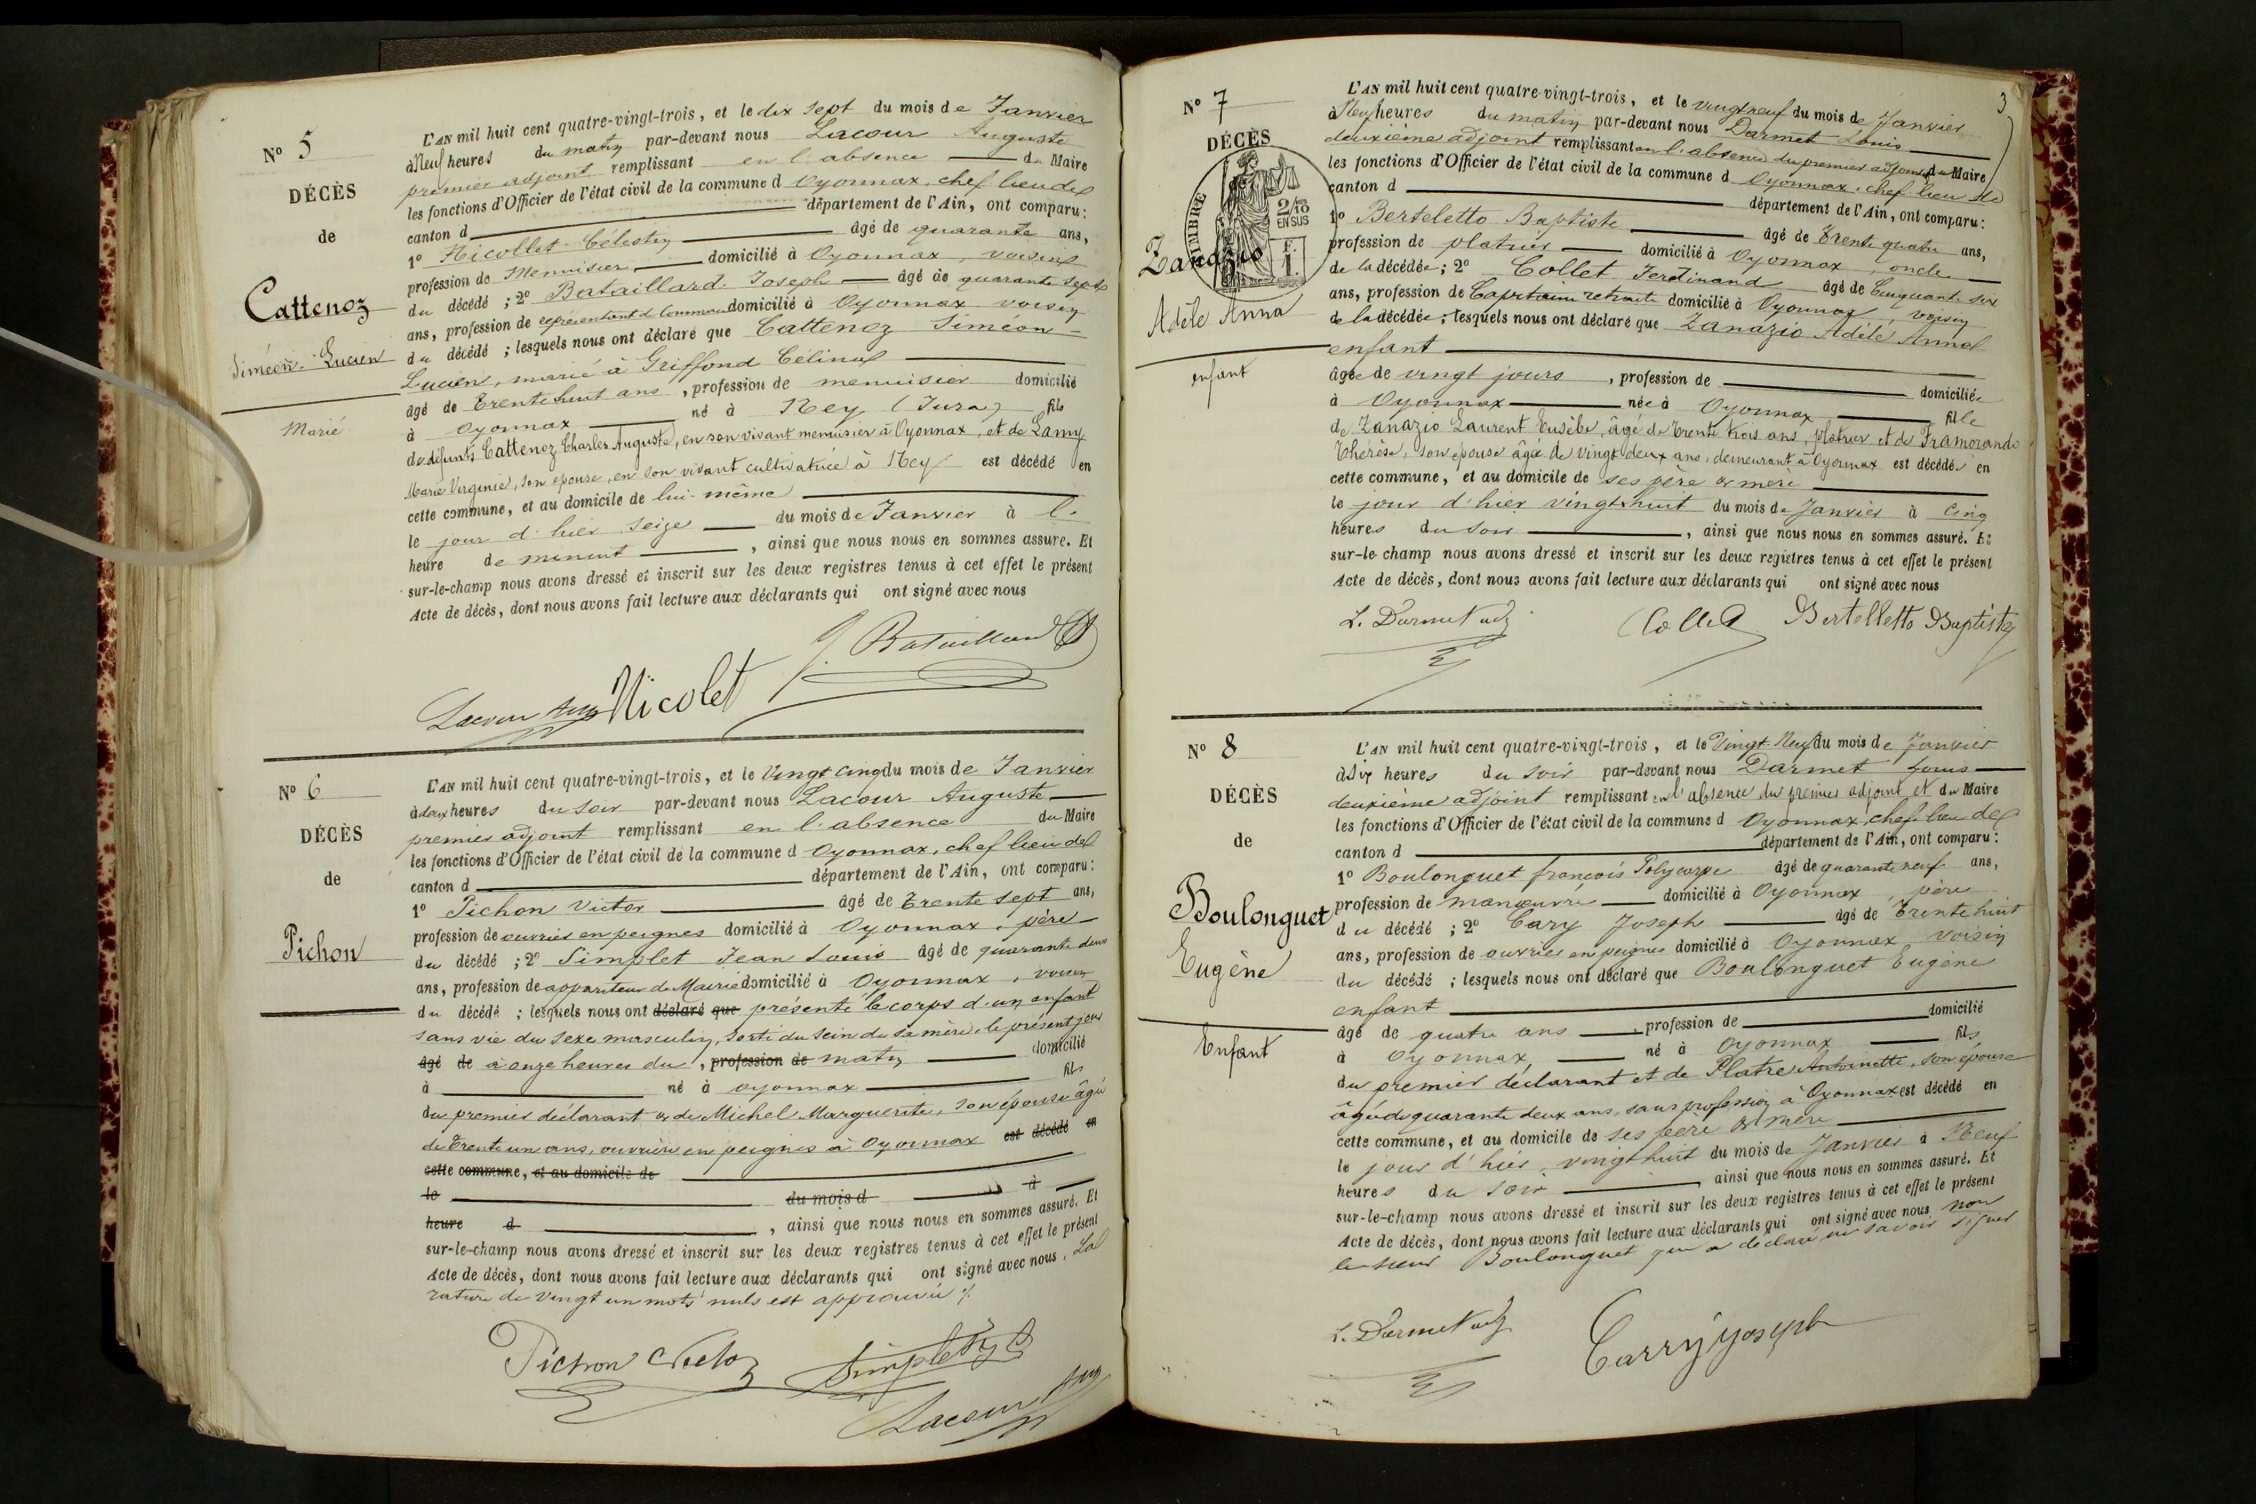 N° 5
DÉCÈS
de
Cattenoz
Siméon Lucien
Marié
L'AN mil huit cent quatre-vingt-trois, et le dix sept du mois de Janvier
à Neuf heures du matin par-devant nous Lacour Auguste
premier adjoint remplissant en l'absence du Maire
les fonctions d'Officier de l'état civil de la commune d Oyonnax, chef lieu de
canton d département de l'Ain, ont comparu :
1° Nicollet Célestin âgé de quarante ans,
profession de Menuisier domicilié à Oyonnax, voisin
du décédé ; 2° Bataillard Joseph âgé de quarante sept
ans, profession de représentant de Commerce domicilié à Oyonnax voisin
du décédé ; lesquels nous ont déclaré que Cattenoz Siméon
Lucien, marié à Griffond Célina
âgé de trente huit ans, profession de menuisier domicilié
à Oyonnax né à Ney (Jura) fils
de défunts Cattenoz Charles Auguste, en son vivant menuisier à Oyonnax, et de Lamy
Marie Virginie, son épouse, en son vivant cultivatrice à Ney est décédé en
cette commune, et au domicile de lui-même
le jour d'hier seize du mois de Janvier à l.
heure de minuit, ainsi que nous nous en sommes assuré. Et
sur-le-champ nous avons dressé et inscrit sur les deux registres tenus à cet effet le présent
Acte de décès, dont nous avons fait lecture aux déclarants qui ont signé avec nous
J. Bataillard
Lacour Aug Nicolet
N° 6
DÉCÈS
de
Pichon
L'AN mil huit cent quatre-vingt-trois, et le Vingt cinq du mois de Janvier
à deux heures du soir par-devant nous Lacour Auguste
premier adjoint remplissant en l'absence du Maire
les fonctions d'Officier de l'état civil de la commune d Oyonnax, chef lieu de
canton d département de l'Ain, ont comparu :
1° Pichon Victor âgé de trente sept ans,
profession de ouvrier en peignes domicilié à Oyonnax, père
du décédé ; 2° Simplet Jean Louis âgé de quarante deux
ans, profession de appariteur de Mairie domicilié à Oyonnax, voisin
du décédé ; lesquels nous ont déclaré que présenté le corps d'un enfant
sans vie du sexe masculin, sorti du sein de sa mère le présent jour
âgé de à onze heures du, profession de matin domicilié
à né à Oyonnax fils
du premier déclarant & de Michel Marguerite, son épouse âgée
de trente un ans, ouvrière en peignes à Oyonnax est décédé en
cette commune, et au domicile de
le du mois d à
heure d, ainsi que nous nous en sommes assuré. Et
sur-le-champ nous avons dressé et inscrit sur les deux registres tenus à cet effet le présent
Acte de décès, dont nous avons fait lecture aux déclarants qui ont signé avec nous. La
rature de vingt un mots nuls est approuvée
Pichon Victor Simplet
Lacour Aug
3
N° 7
DÉCÈS
TIMBRE
2/10
EN SUS
F.
1.
Zanazio
Adèle Anna
enfant
L'AN mil huit cent quatre-vingt-trois, et le vingt neuf du mois de Janvier
à Neuf heures du matin par-devant nous Darmet Louis
deuxième adjoint remplissant en l'absence du premier adjoint & du Maire
les fonctions d'Officier de l'état civil de la commune d Oyonnax, chef lieu de
canton d département de l'Ain, ont comparu :
1° Berteletto Baptiste âgé de trente quatre ans,
profession de platrier domicilié à Oyonnax, oncle
de la décédée ; 2° Collet Ferdinand âgé de Cinquante six
ans, profession de Capitaine retraité domicilié à Oyonnax, voisin
de la décédée ; lesquels nous ont déclaré que Zanazio Adèle Anna
enfant
âgée de vingt jours, profession de domiciliée
à Oyonnax née à Oyonnax fille
de Zanazio Laurent Eusèbe, âgé de trente trois ans, platrier et de Framorando
Thérèse, son épouse âgée de vingt deux ans, demeurant à Oyonnax est décédée en
cette commune, et au domicile de ses père & mère
le jour d'hier vingt huit du mois de Janvier à cinq
heures du soir, ainsi que nous nous en sommes assuré. Et
sur-le-champ nous avons dressé et inscrit sur les deux registres tenus à cet effet le présent
Acte de décès, dont nous avons fait lecture aux déclarants qui ont signé avec nous
L. Darmet adj Collet Bertelletto Baptiste
N° 8
DÉCÈS
de
Boulonguet
Eugène
Enfant
L'AN mil huit cent quatre-vingt-trois, et le Vingt Neuf du mois de Janvier
à Six heures du soir par-devant nous Darmet Louis
deuxième adjoint remplissant en l'absence du premier adjoint et du Maire
les fonctions d'Officier de l'état civil de la commune d Oyonnax, chef lieu de
canton d département de l'Ain, ont comparu :
1° Boulonguet françois Polycarpe âgé de quarante neuf ans,
profession de manœuvre domicilié à Oyonnax père
du décédé ; 2° Cary Joseph âgé de trente huit
ans, profession de ouvrier en peignes domicilié à Oyonnax voisin
du décédé ; lesquels nous ont déclaré que Boulonguet Eugène
enfant
âgé de quatre ans, profession de domicilié
à Oyonnax, né à Oyonnax fils
du premier déclarant et de Platre Antoinette, son épouse
âgée de quarante deux ans, sans profession à Oyonnax est décédé en
cette commune, et au domicile de ses père & mère
le jour d'hier, vingt huit du mois de Janvier à Neuf
heures du soir, ainsi que nous nous en sommes assuré. Et
sur-le-champ nous avons dressé et inscrit sur les deux registres tenus à cet effet le présent
Acte de décès, dont nous avons fait lecture aux déclarants qui ont signé avec nous non
le sieur Boulonguet qui a déclaré ne savoir signer
L. Darmet adj Carry Joseph